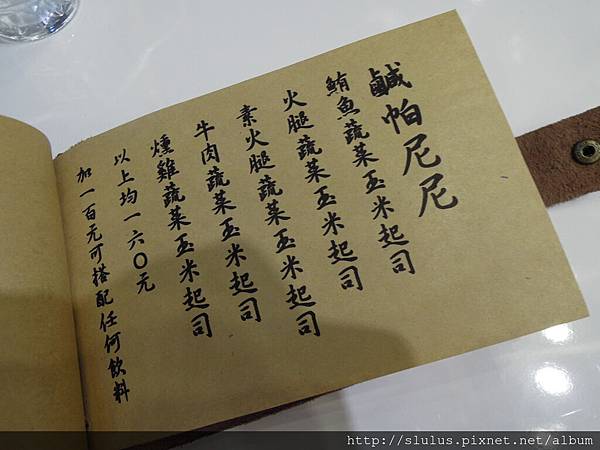 鹹帕尼尼
鮪魚蔬菜玉米起司
火腿蔬菜玉米起司
素火腿蔬菜玉米起司
牛肉蔬菜玉米起司
燻雞蔬菜玉米起司
以上均一六〇元
加一百元可搭配任何飲料
http://slulus.pixnet.net/album